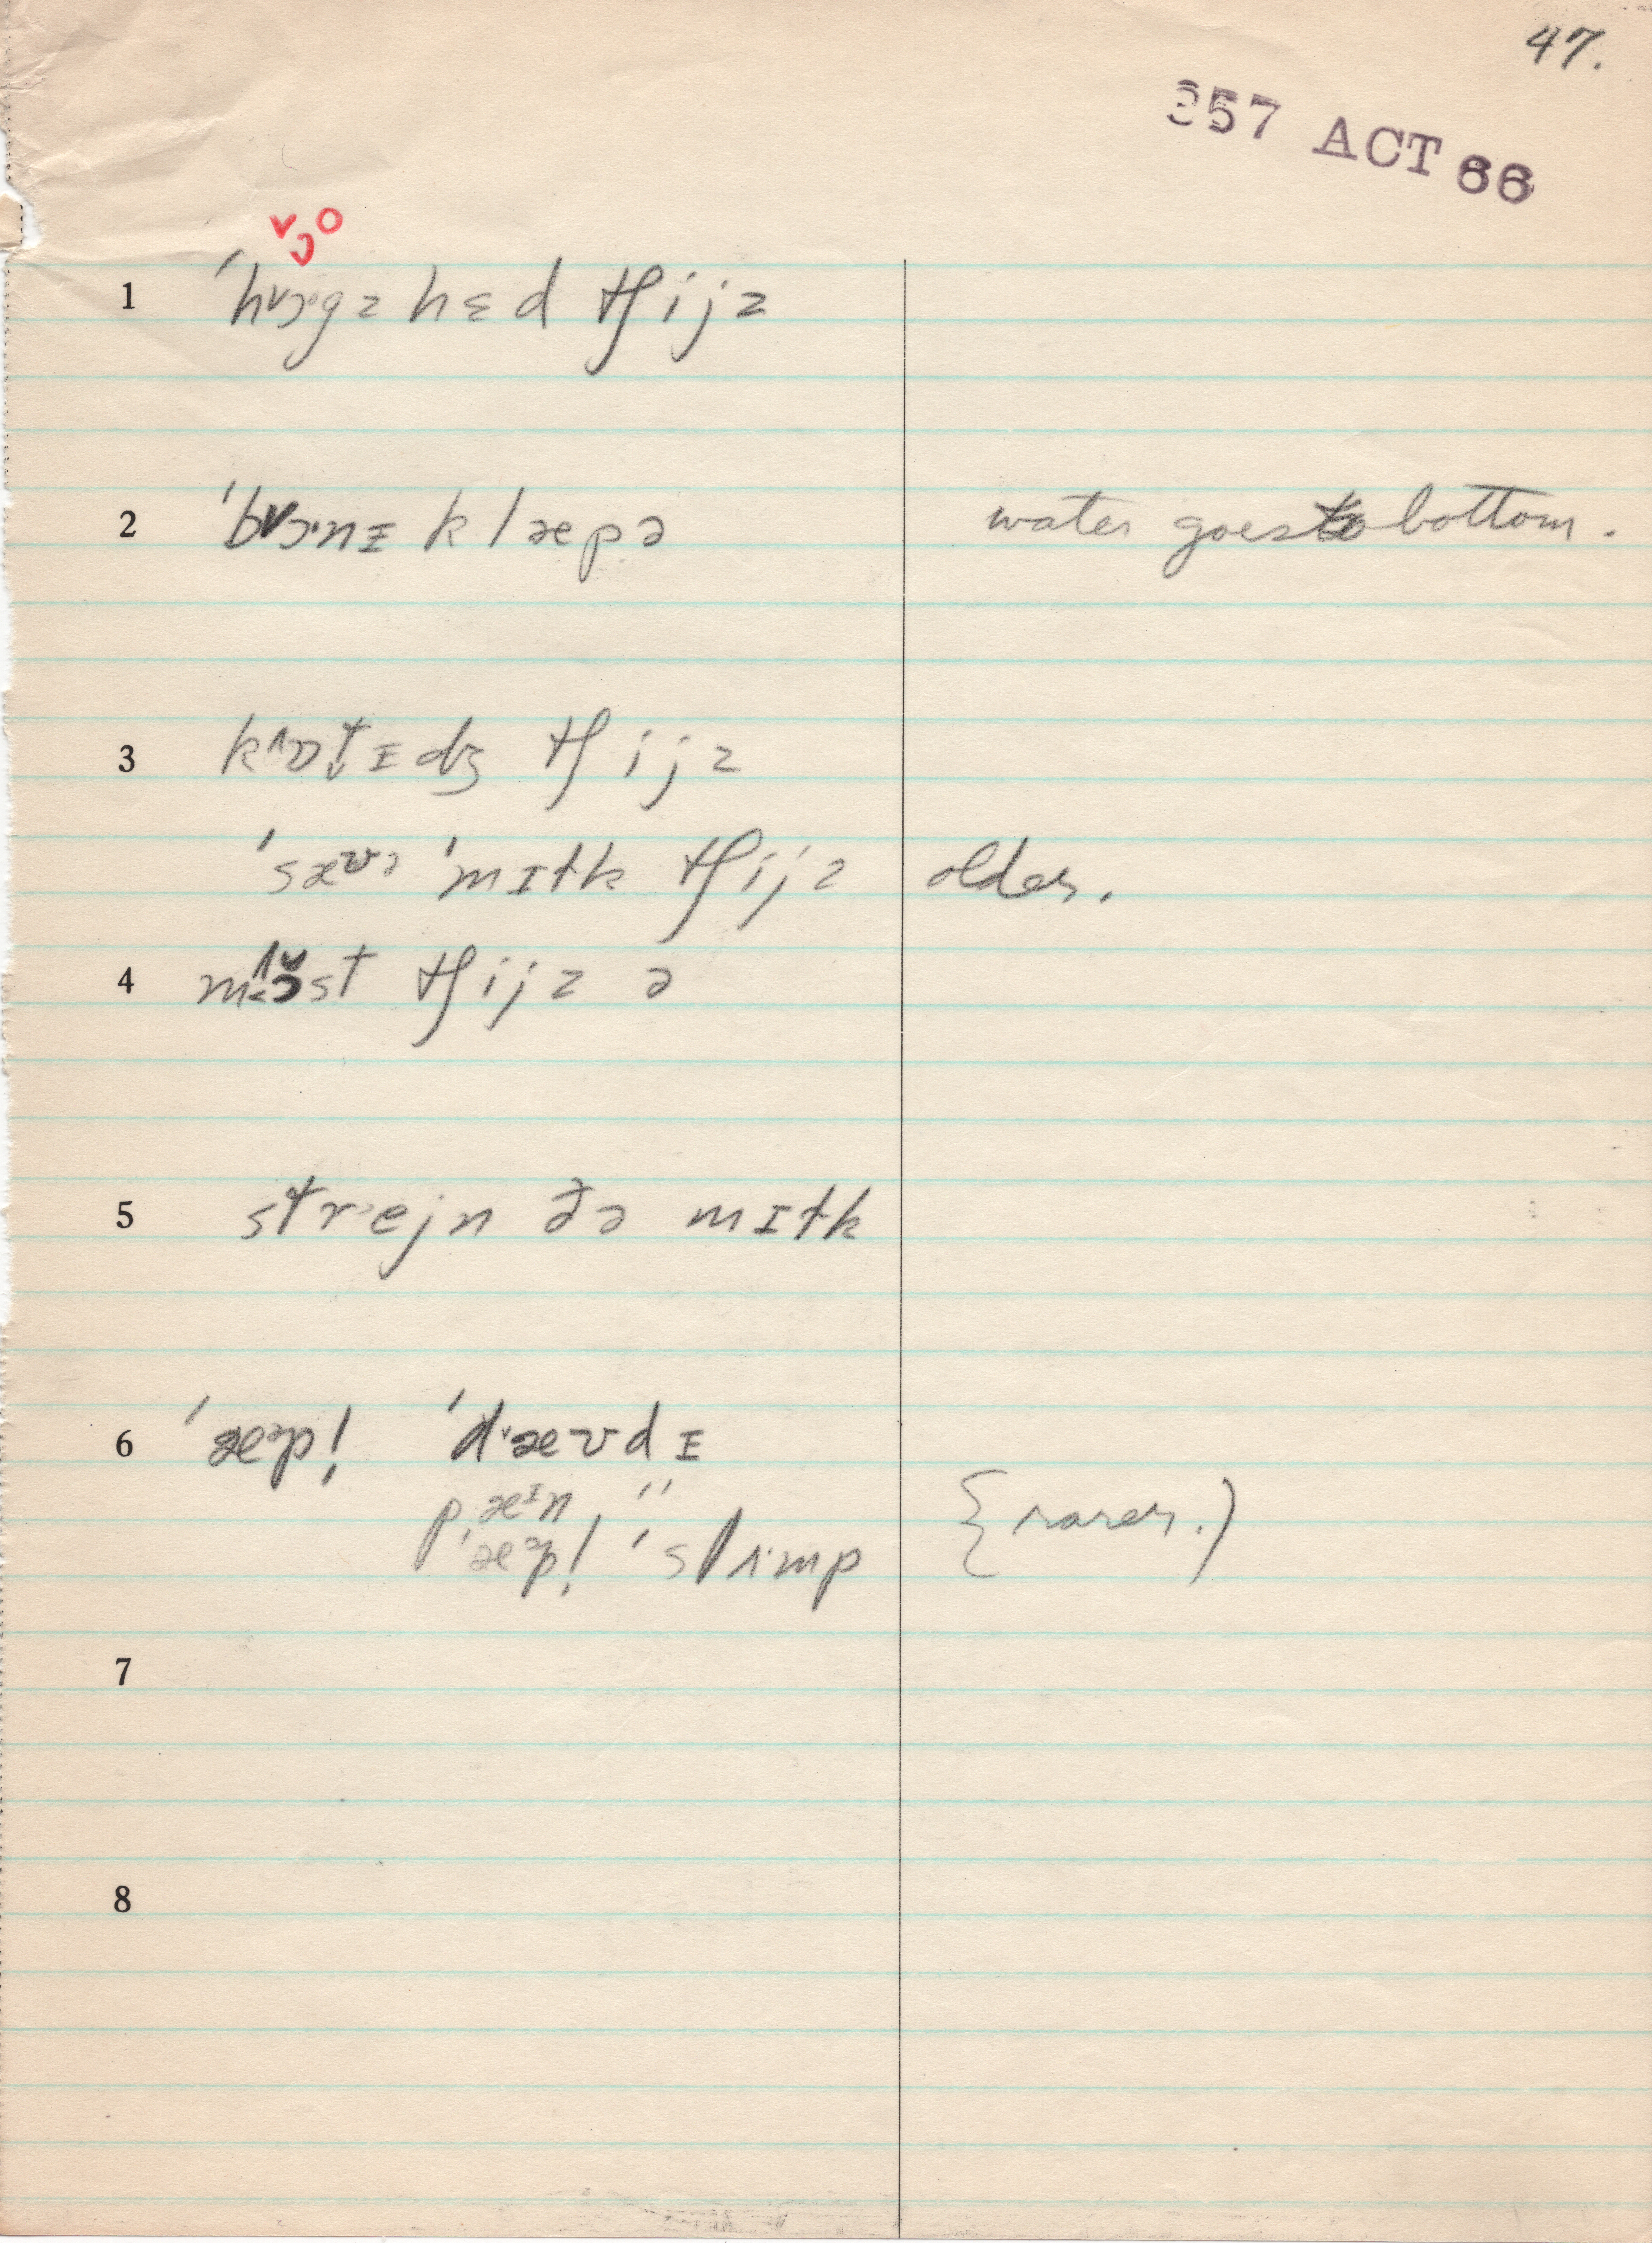 47.
357 ACT 66
ˇɔo
1 ˈhɔˑgz hɛd tʃijz
2 ˈbɔˑnɪ klæpə water goes to bottom.
3 kɒtɪdʒ tʃijz
ˈsævə ˈmɪtk tʃijz older.
4 mɔst tʃijz ə
5 strejn ðə mɪtk
6 ˈæəp! ˈdævdɪ
pæɪn, "
ˈæəp! ˈslʌmp {rarer.)
7
8